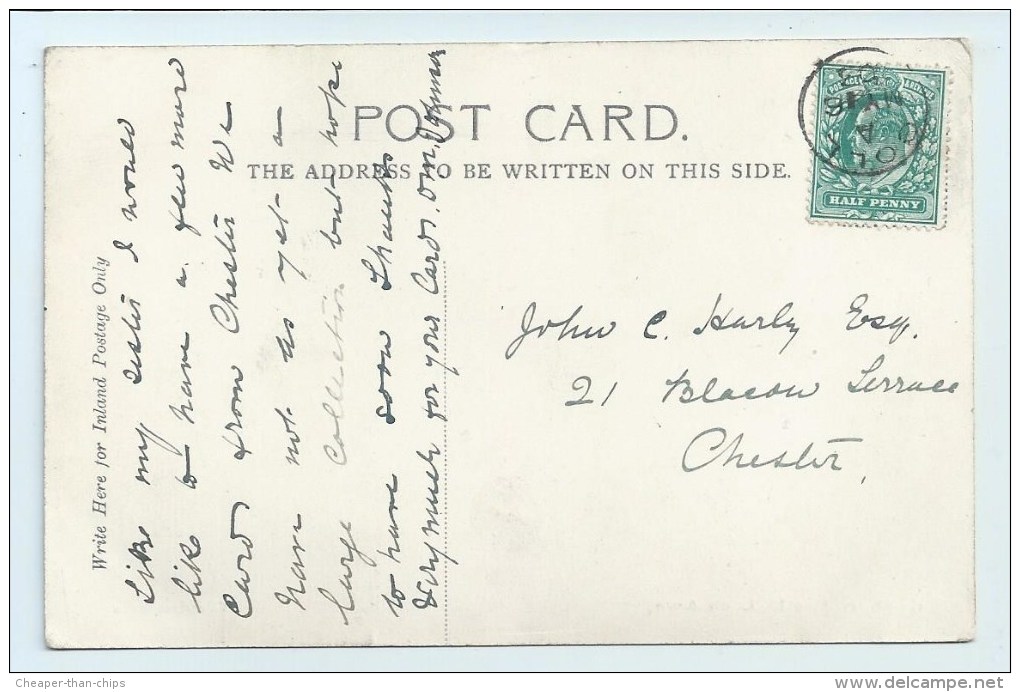 POST CARD.
THE ADDRESS TO BE WRITTEN ON THIS SIDE.
Write Here for Inland Postage Only
Like my sister I would
like to have a few more
Cards from Chester We
have not as yet a
large Collection but hope
to have soon Thanks
Very much for your Cards.
HALF PENNY
John C. Hurly Esq.
21 Blacon Terrace
Chester,
Cheaper-than-chips
www.delcampe.net